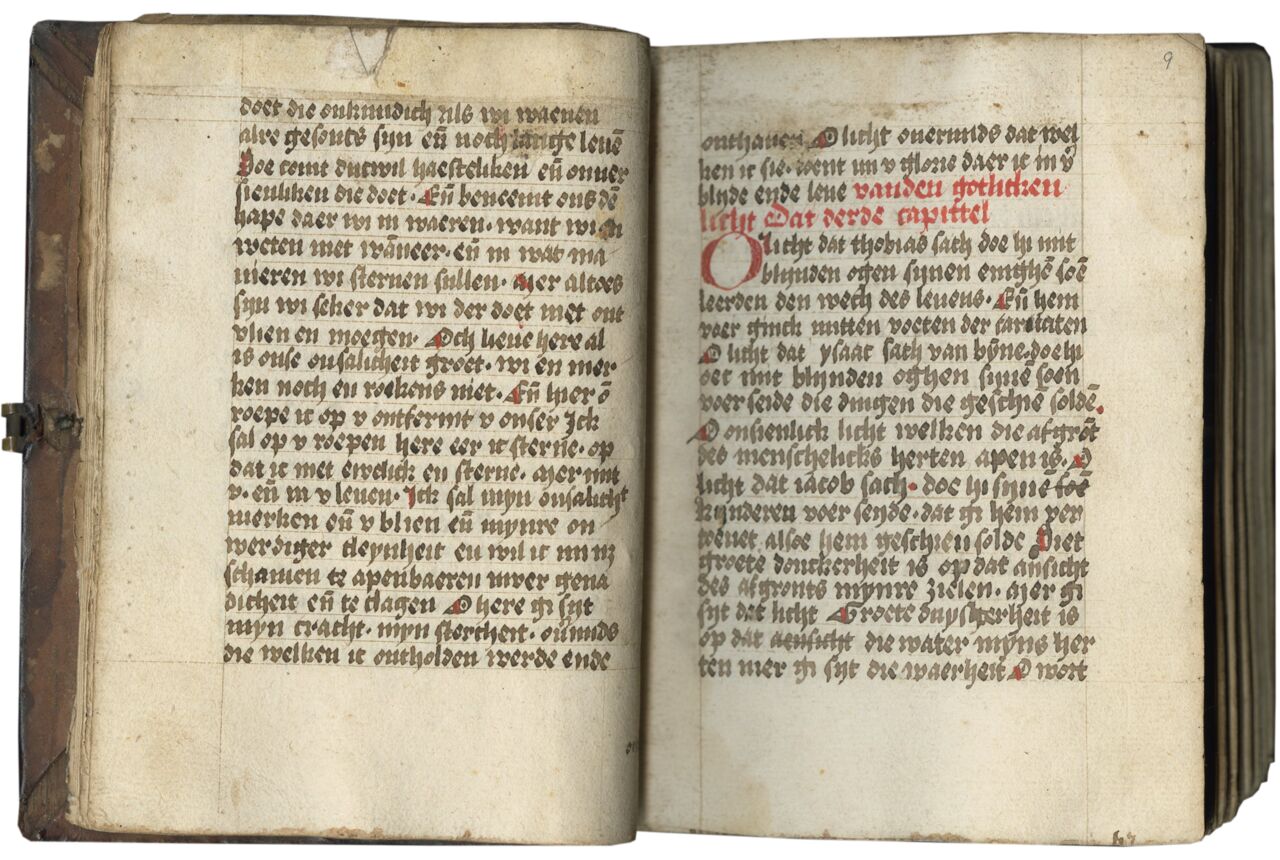 doet die onkundich Als wi waenen
alre gesonts syn eñ noch lange leuē
Doe comt dicwil haesteliken eñ onuer
sienliken die doet. Eñ beneemt ons dē
hape daer wi in waeren. want wi en
weten niet wāneer. eñ in wat ma
nieren wi steruen sullen. Mer altoes
syn wi seker dat wi der doet niet ont
vlien en moegen. Och lieue here al
is onse onsalicheit groet. wi en mer
ken noch en roekens niet. Eñ hier ō
roepe ic op v ontfermt v onser Ick
sal op v roepen here eer ic sterue. op
dat ic niet ewelick en sterue. mer mit
v. eñ in v leuen. Ick sal myn onsalicht
merken eñ v blien eñ mynre on
werdiger cleynheit en wil ic mi nz
schamen te apenbaeren uwer gena
dicheit eñ te clagen O here gi syt
myn cracht. myn stercheit. oumids
die welken ic ontholden werde ende
onthauen O licht ouermids dat wel
ken ic sie. doent mi v glorie daer ic in v
blyde ende leue vanden gotliken
licht Dat derde capittel
O licht dat thobias sach doe hi mit
blynden ogen synen enighē soē
leerden den wech des leuens. Eñ hem
voer ginck mitten voeten der caritaten
O licht dat ysaac sach van bȳne. doe hi
oec mit blynden oghen synē soen
voer seide die dingen die geschiē soldē.
O onsienlick licht welken die afgrōt
des menschelicks herten apen is. O
licht dat iacob sach. doe hi synē
kynderen voer seyde. dat gi hem per
alsoe hem geschien solde Siet
groete donckerheit is op dat ansicht
des afgronts mynre zielen. mer gi
syt dat licht Groete duysterheit is
op dat aensicht die water myns her
ten mer gi syt die waerheit O wort
9